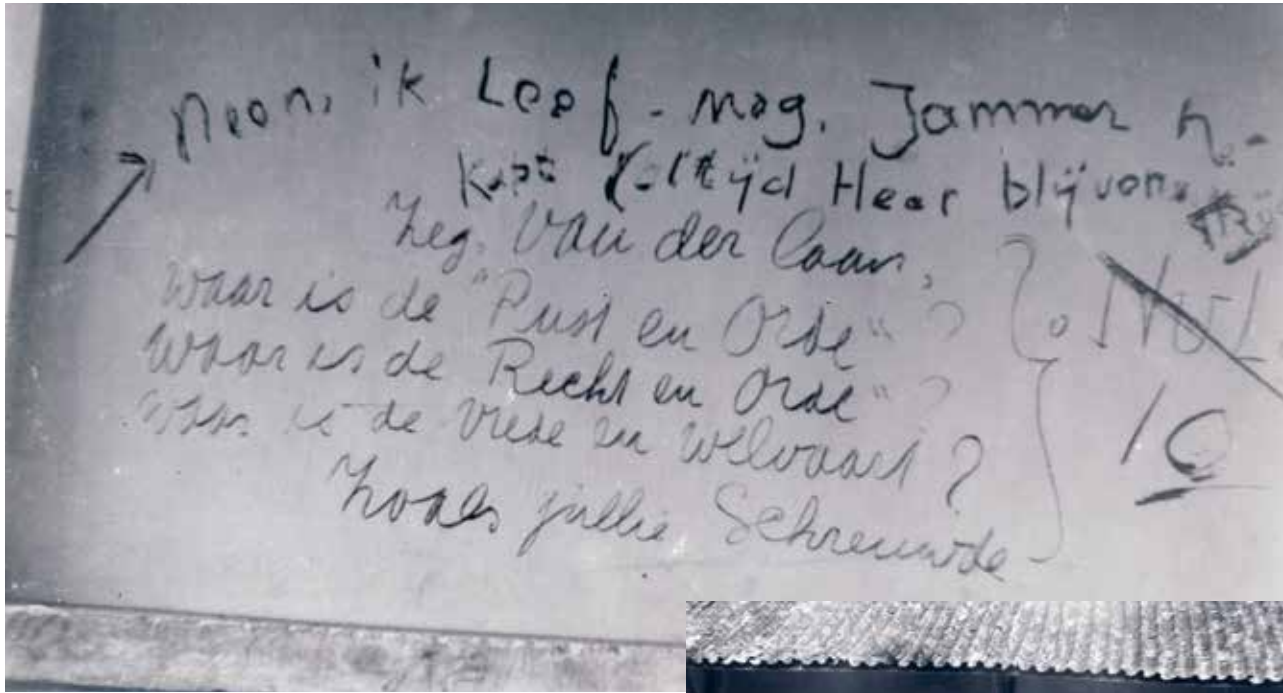 Neen, ik Leef - nog. Jammer h.-
Heer blijven.
Zeg. Van der Laan,
Waar is de "Rust en Orde" ?
Waar is de Recht en Orde" ?
Waar is de Vrede en Welvaart ?
Zoals jullie Schreeuwde
10